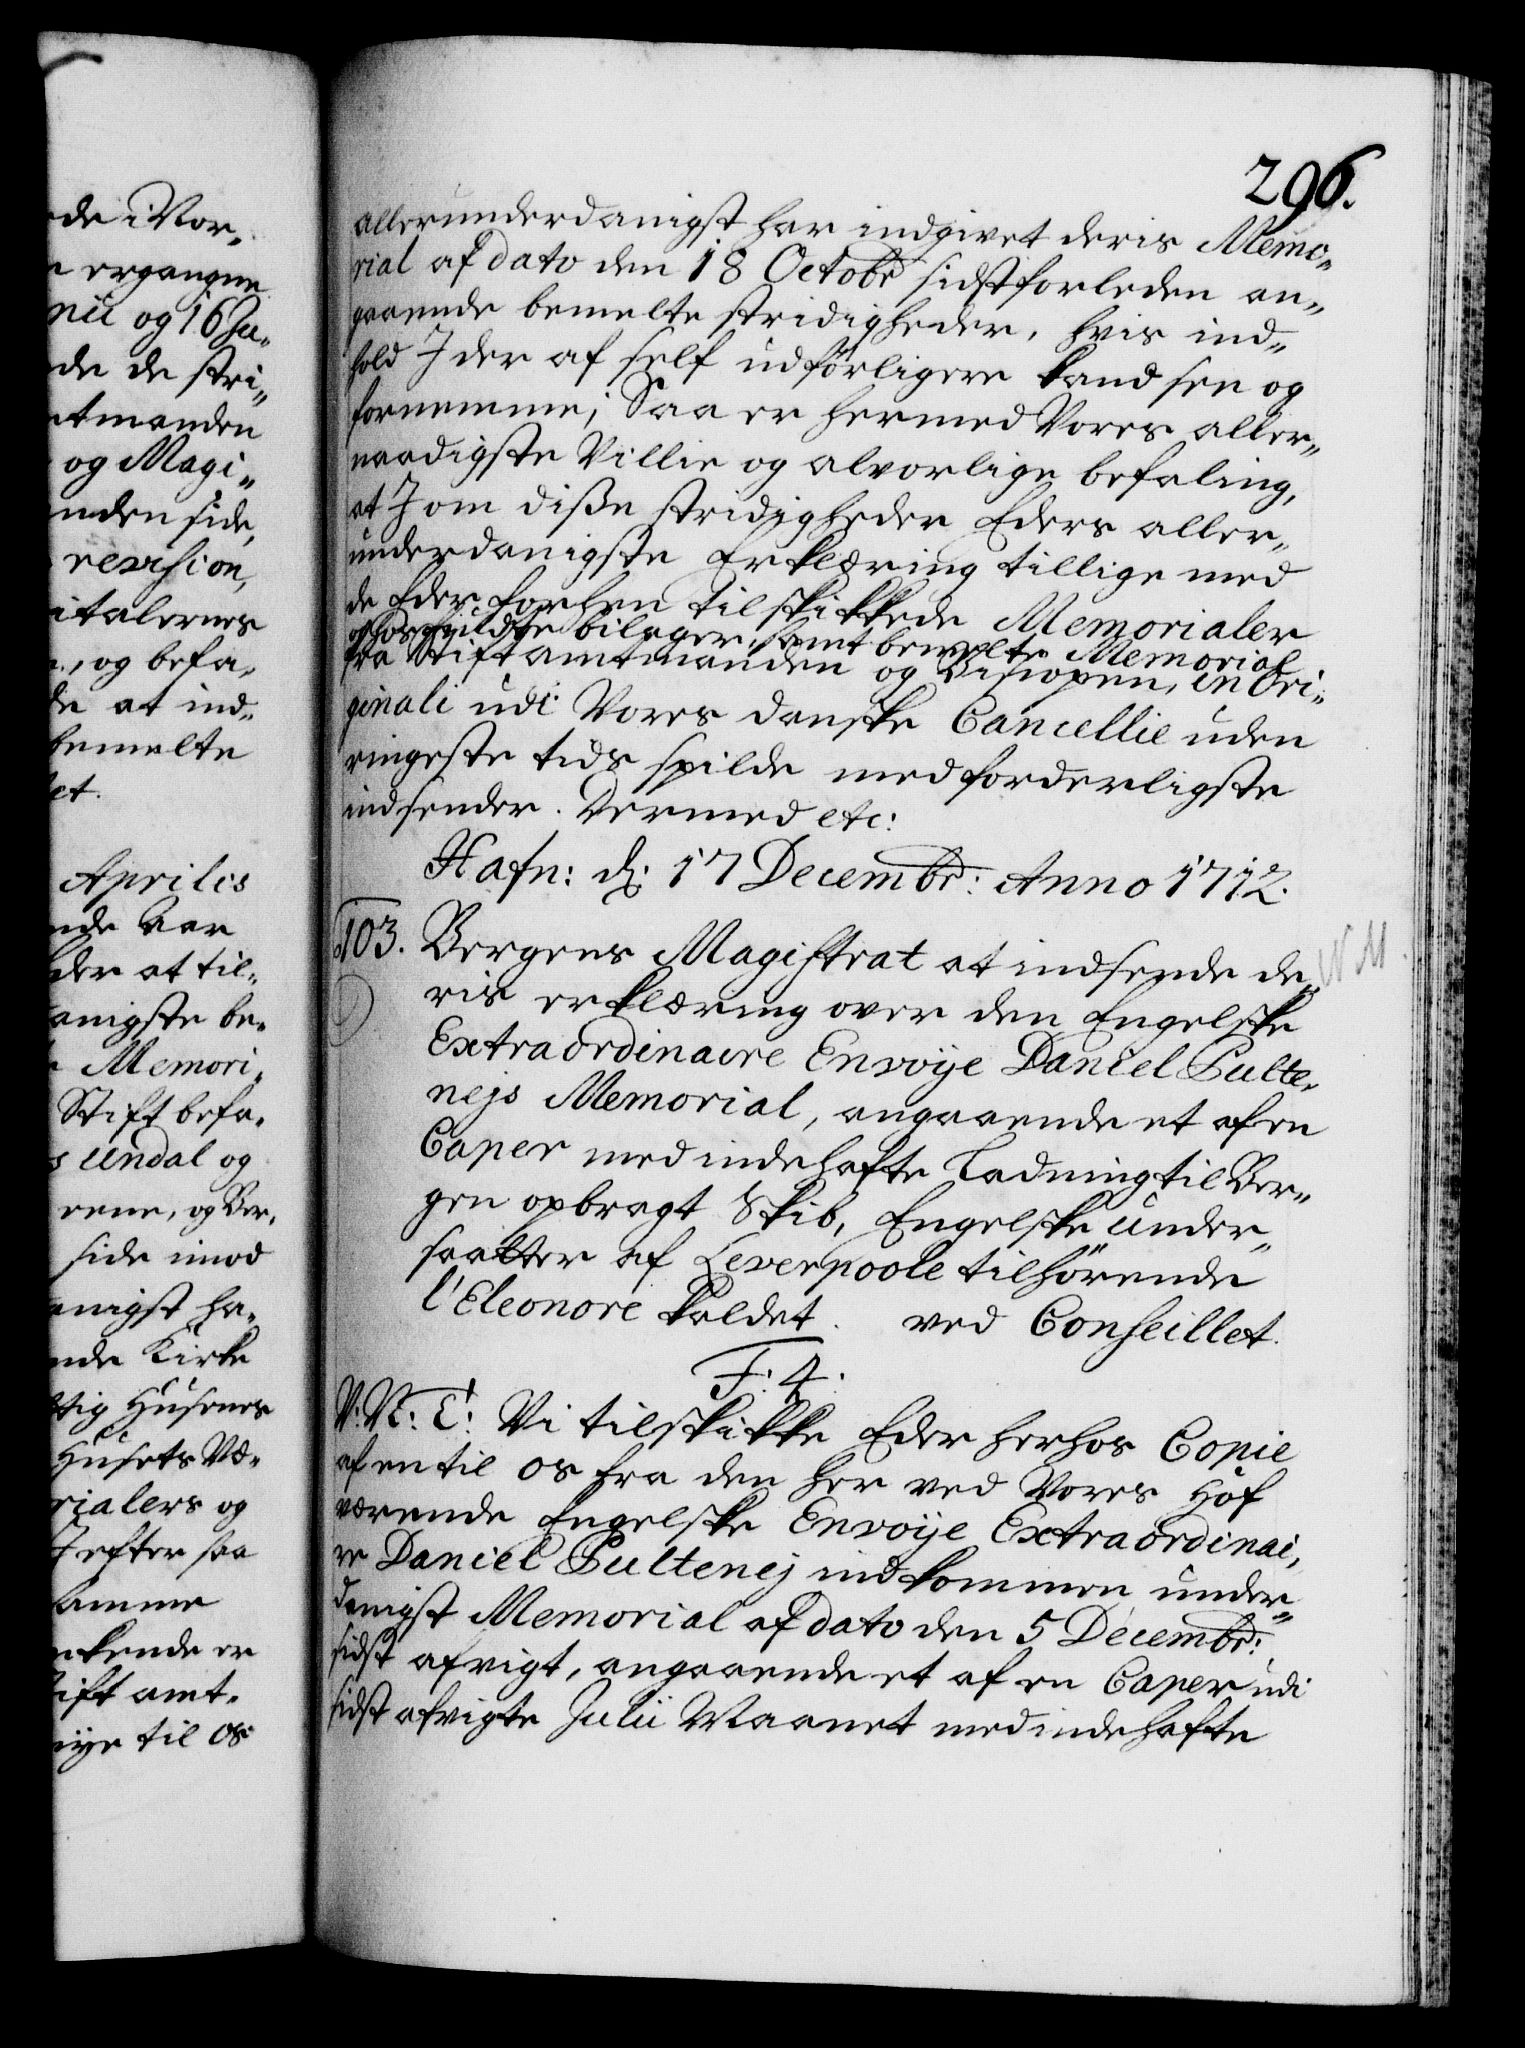 de i Vor-
ergangne
nii og 16 Ju-
de de stri-
tmanden
og Magi-
nden side,
revision,
italernes
, og befa-
de at ind-
bemelte
et.
Aprilis
nde var
der at til-
anigste be-
Memori-
Stift befa-
s Undal og
rene, og Ber-
side imod
anigst ha-
nde Kirke
tig Husenes
Husets Væ-
rialers og
J efter saa
samme
nkende er
tift amt-
nye til os
296.
allerunderdanigst har indgivet deris Memo-
rial af dato den 18 Octobr sidstforleden an-
gaaende bemelte stridigheder, hvis ind-
hold J der af self udførligere kand see og
fornemme; Saa er hermed Vores aller-
naadigste Villie og alvorlige befaling,
at J om disse stridigheder Eders aller-
underdanigste Erklæring tillige med
de Eder forhen tilskikkede Memorialer
og hosføiede bilager, samt bemelte Memorial
fra Stiftamtmanden og Bispen, in Ori-
ginali udi Vores danske Cancellie uden
ringeste tids spilde med forderligste
indsender. Dermed etc:
Hafn: d: 17 Decembr: Anno 1712.
103. Bergens Magistrat at indsende de-
ris erklæring over den Engelske
Extraordinaire Envoÿe Daniel Pulte-
nejs Memorial, angaaende et af en
Caper med indehafte Ladning til Ber-
gen opbragt Skib, Engelske Under-
saatter af Leverpoole tilhørende
l'Eleonore kaldet. ved Conseillet.
F: 4.
V: N: T: Vi tilskikke Eder herhos Copie
af en til os fra den her ved Vores Hof
værende Engelske Envoÿe Extraordinai-
re Daniel Pultenej indkommen under-
danigst Memorial af dato den 5 Decembr:
sidst afvigt, angaaende et af en Caper udi
sidst afvigte Julii Maanet med indehafte